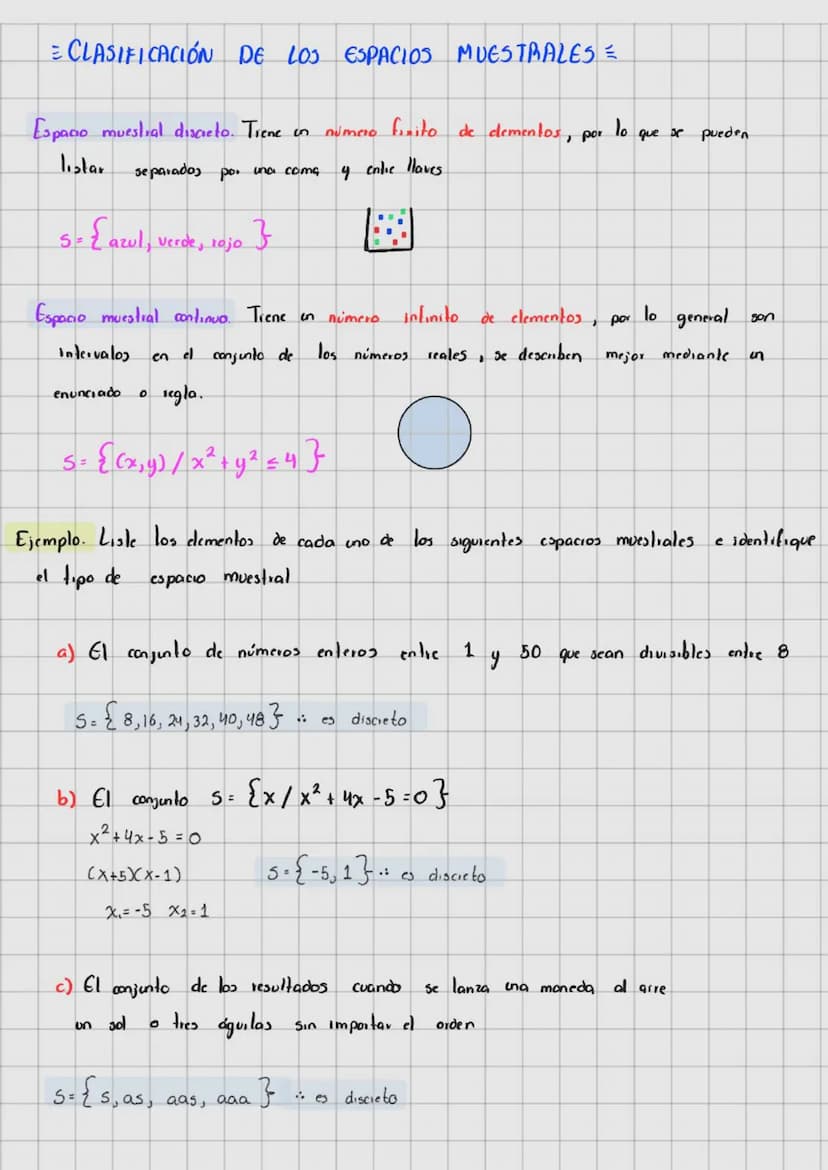 = CLASIFICACIÓN DE LOS ESPACIOS MUESTRALES =
Espacio muestral discreto. Tiene un número finito de elementos, por lo que se pueden
listar separados por una coma y entre llaves
S = { azul, verde, rojo }
Espacio muestral continuo. Tiene un número infinito de elementos, por lo general son
intervalos en el conjunto de los números reales, se describen mejor mediante un
enunciado o regla.
S = {(x,y) / x² + y² ≤ 4 }
Ejemplo. Liste los elementos de cada uno de los siguientes espacios muestrales e identifique
el tipo de espacio muestral
a) El conjunto de números enteros entre 1 y 50 que sean divisibles entre 8
S = { 8, 16, 24, 32, 40, 48 } ∴ es discreto
b) El conjunto S = {x / x² + 4x - 5 = 0 }
x² + 4x - 5 = 0
(x+5)(x-1) S = { -5, 1 } ∴ es discreto
x₁ = -5 x₂ = 1
c) El conjunto de los resultados cuando se lanza una moneda al aire
un sol o tres águilas sin importar el orden
S = { s, as, aas, aaa } ∴ es discreto